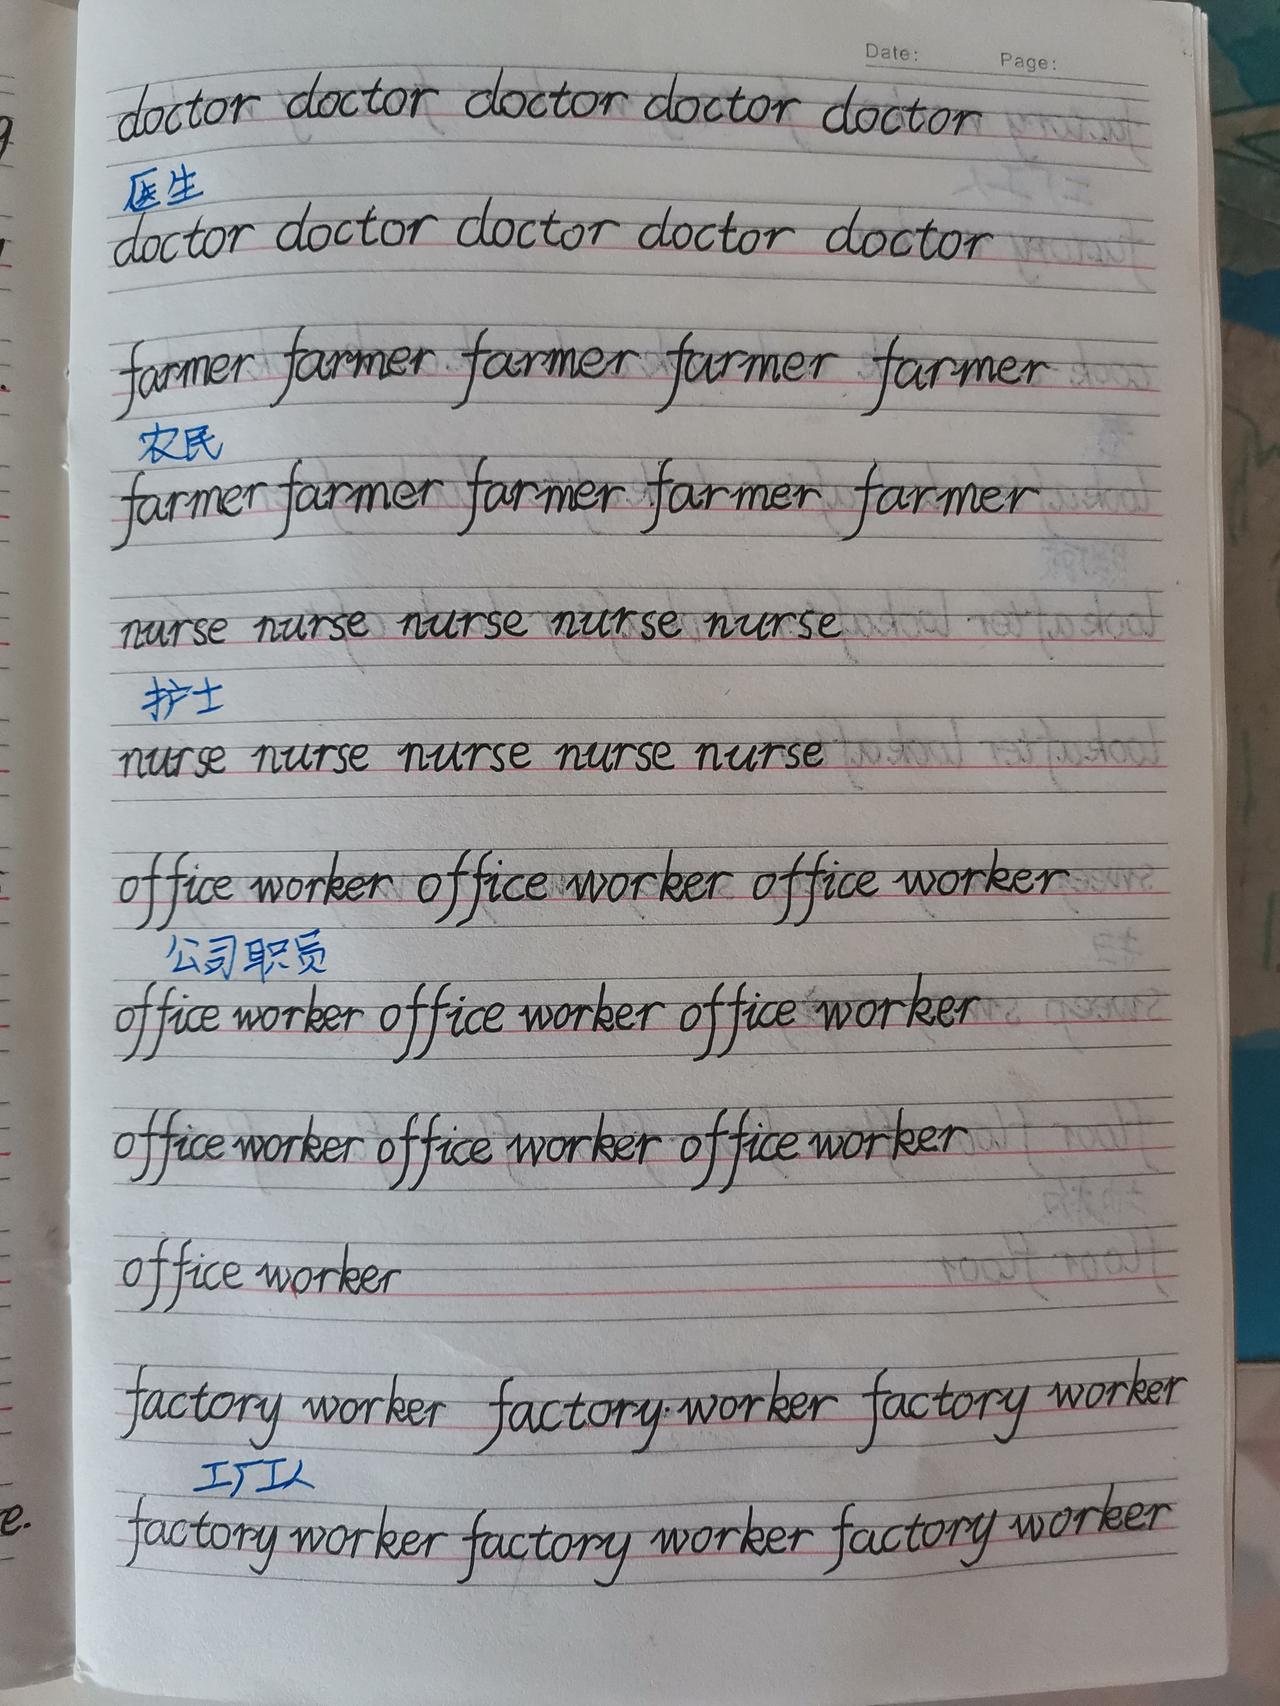 Date: Page:
doctor doctor doctor doctor doctor
医生
doctor doctor doctor doctor doctor
farmer farmer farmer farmer farmer
农民
farmer farmer farmer farmer farmer
nurse nurse nurse nurse nurse
护士
nurse nurse nurse nurse nurse
office worker office worker office worker
公司职员
office worker office worker office worker
office worker office worker office worker
office worker
factory worker factory worker factory worker
工厂工人
factory worker factory worker factory worker